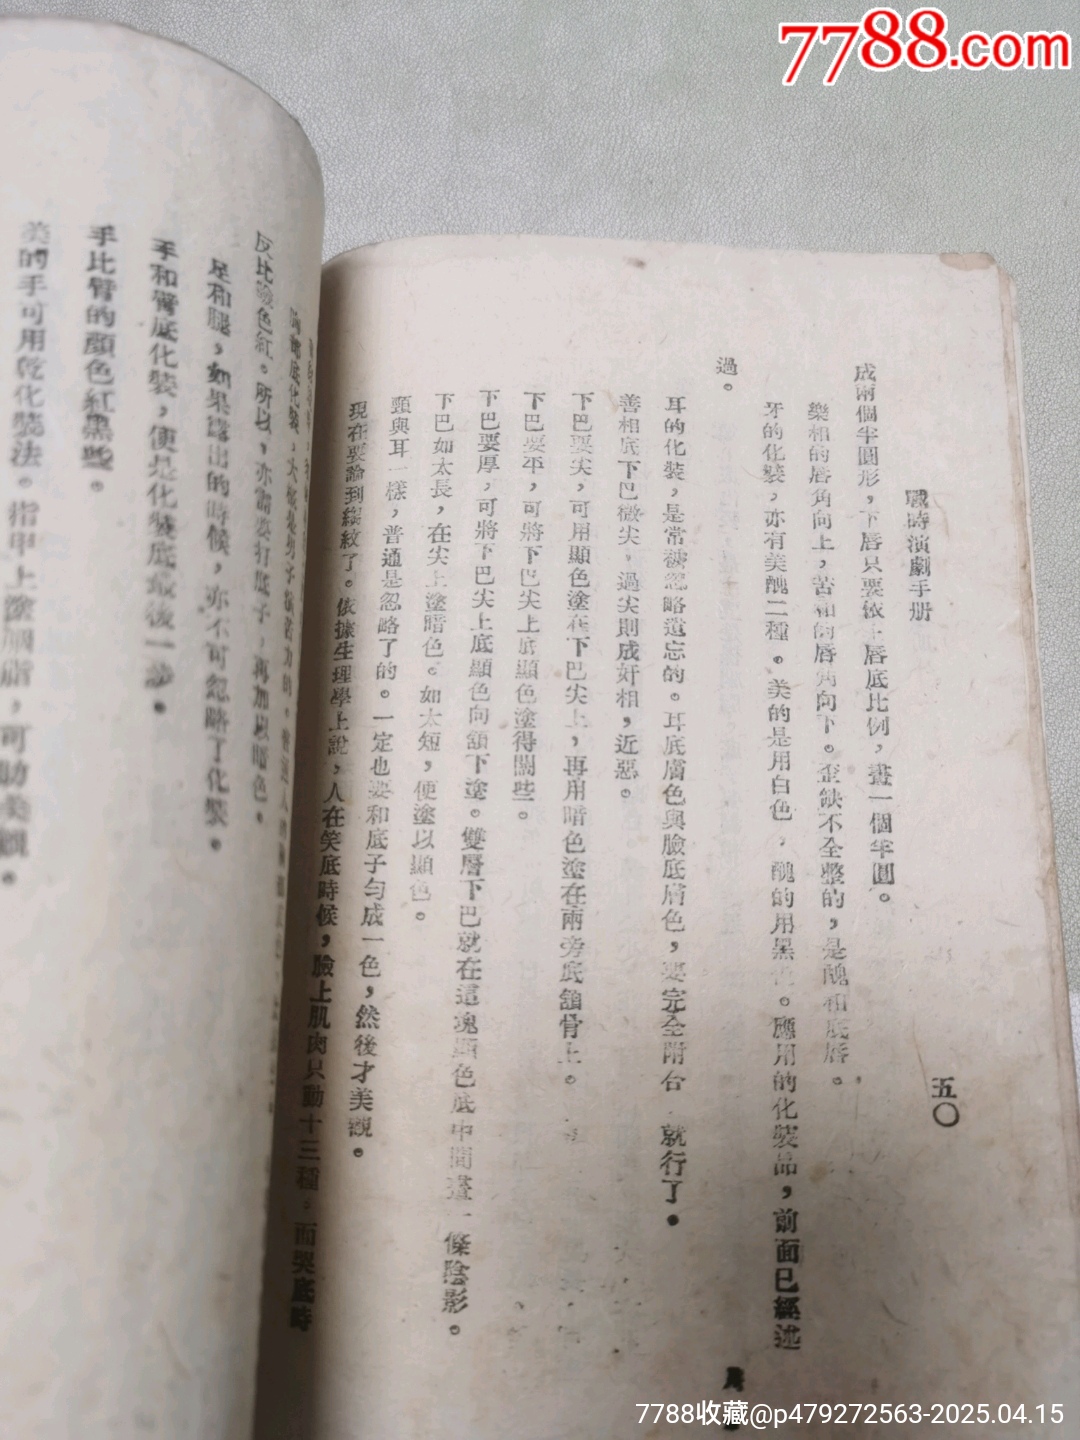 7788.com
戰時演劇手册
五〇
成兩個半圓形，下唇只要依上唇底比例，畫一個半圓。
樂相的唇角向上，苦相的唇角向下。歪缺不全整的，是醜相底唇。
牙的化裝，亦有美醜二種。美的是用白色，醜的用黑色。應用的化裝品，前面已經述
過。
耳的化裝，是常被忽略遺忘的。耳底膚色與臉底膚色，要完全附合 就行了。
善相底下巴微尖。過尖則成奸相，近惡。
下巴要尖，可用顯色塗在下巴尖上，再用暗色塗在兩旁底頷骨上。
下巴要平，可將下巴尖上底顯色塗得闊些。
下巴要厚，可將下巴尖上底顯色向頷下塗。雙層下巴就在這塊顯色底中間畫一條陰影。
下巴如太長，在尖上塗暗色。如太短，便塗以顯色。
頸與耳一樣，普通是忽略了的。一定也要和底子勻成一色，然後才美觀。
現在要論到縐紋了。依據生理學上說，人在笑底時候，臉上肌肉只動十三種。而哭底時
反比臉色紅。所以，亦需要打底子，再加以暗色。
足和腿，如果露出的時候，亦不可忽略了化裝。
手和臂底化裝，便是化裝底最後一步。
手比臂的顏色紅黑些。
美的手可用乾化裝法。指甲上塗胭脂，可助美觀。
7788收藏@p479272563-2025.04.15